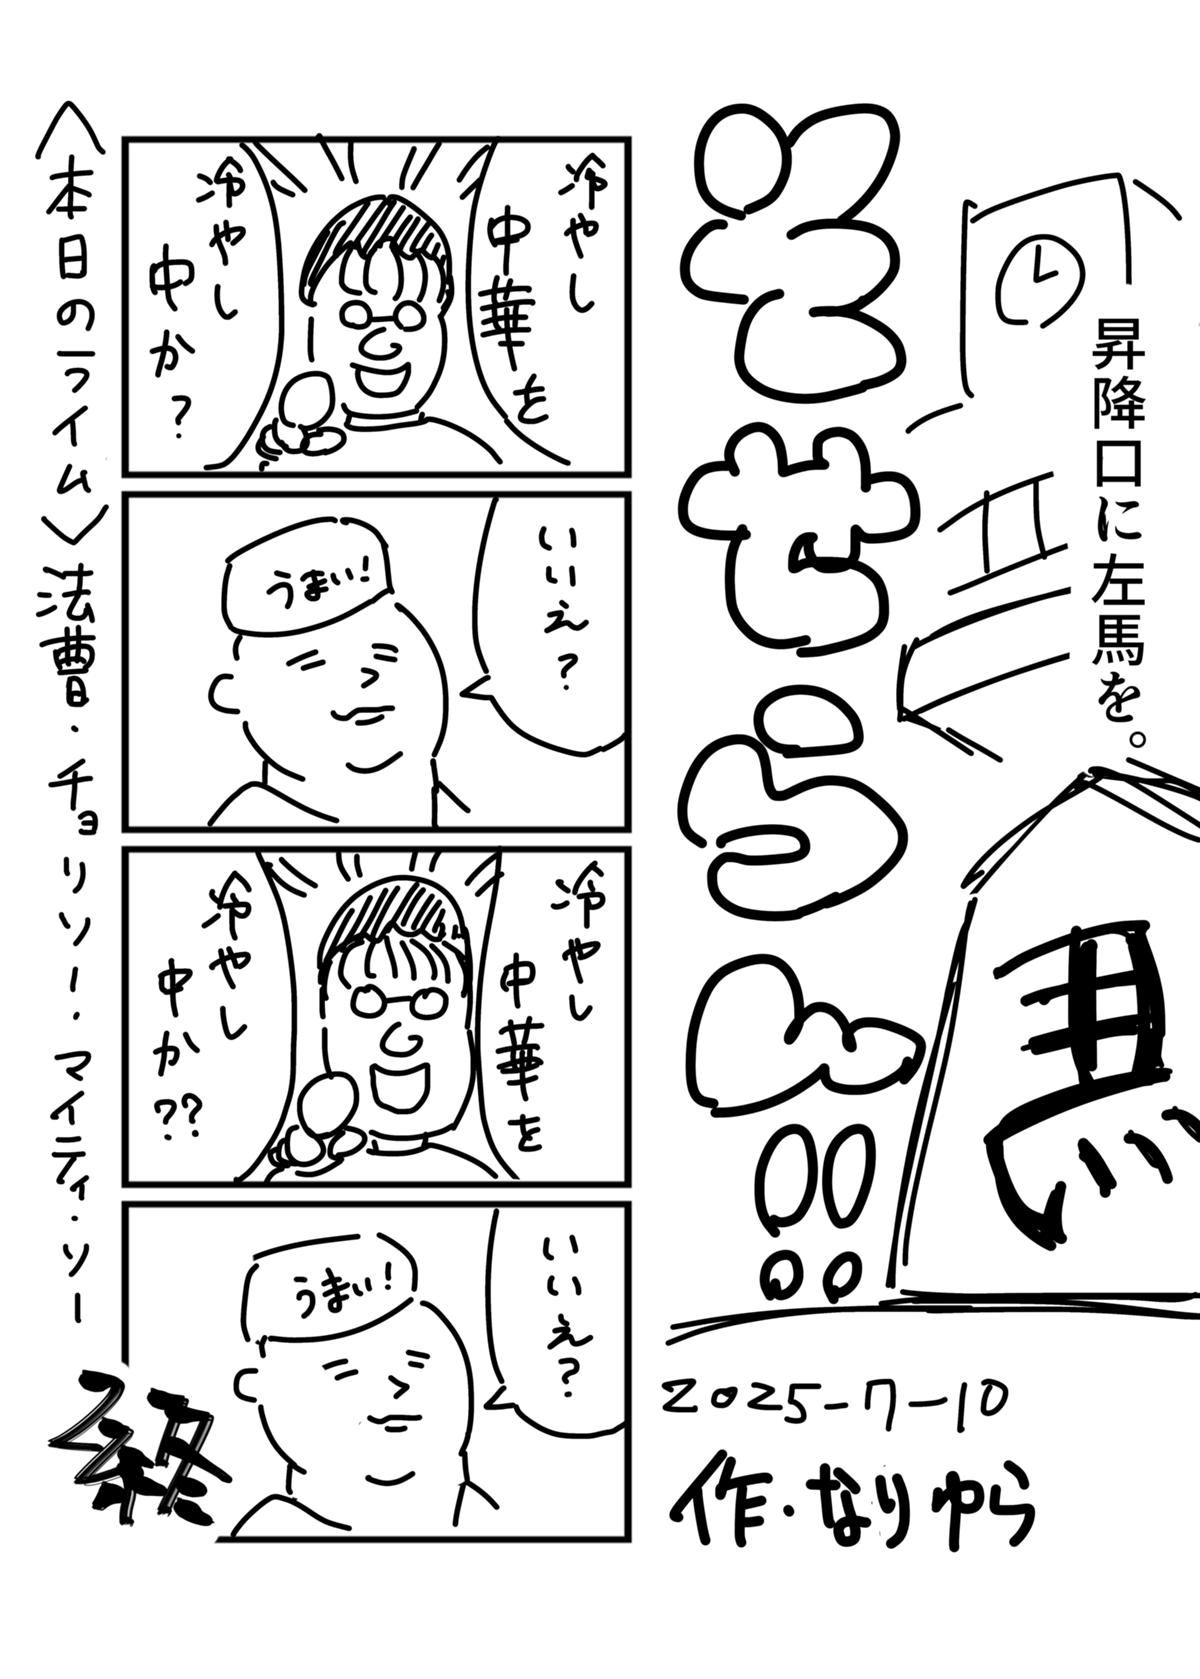 昇降口に左馬を。
馬
そせらん!!
2025-7-10
作・なりゆら
冷やし
中華を
冷やし
中か?
いいえ?
うまい!
冷やし
中華を
冷やし
中か??
いいえ?
うまい!
〈本日のライム〉法曹・チョリソー・マイティ・ソー
終